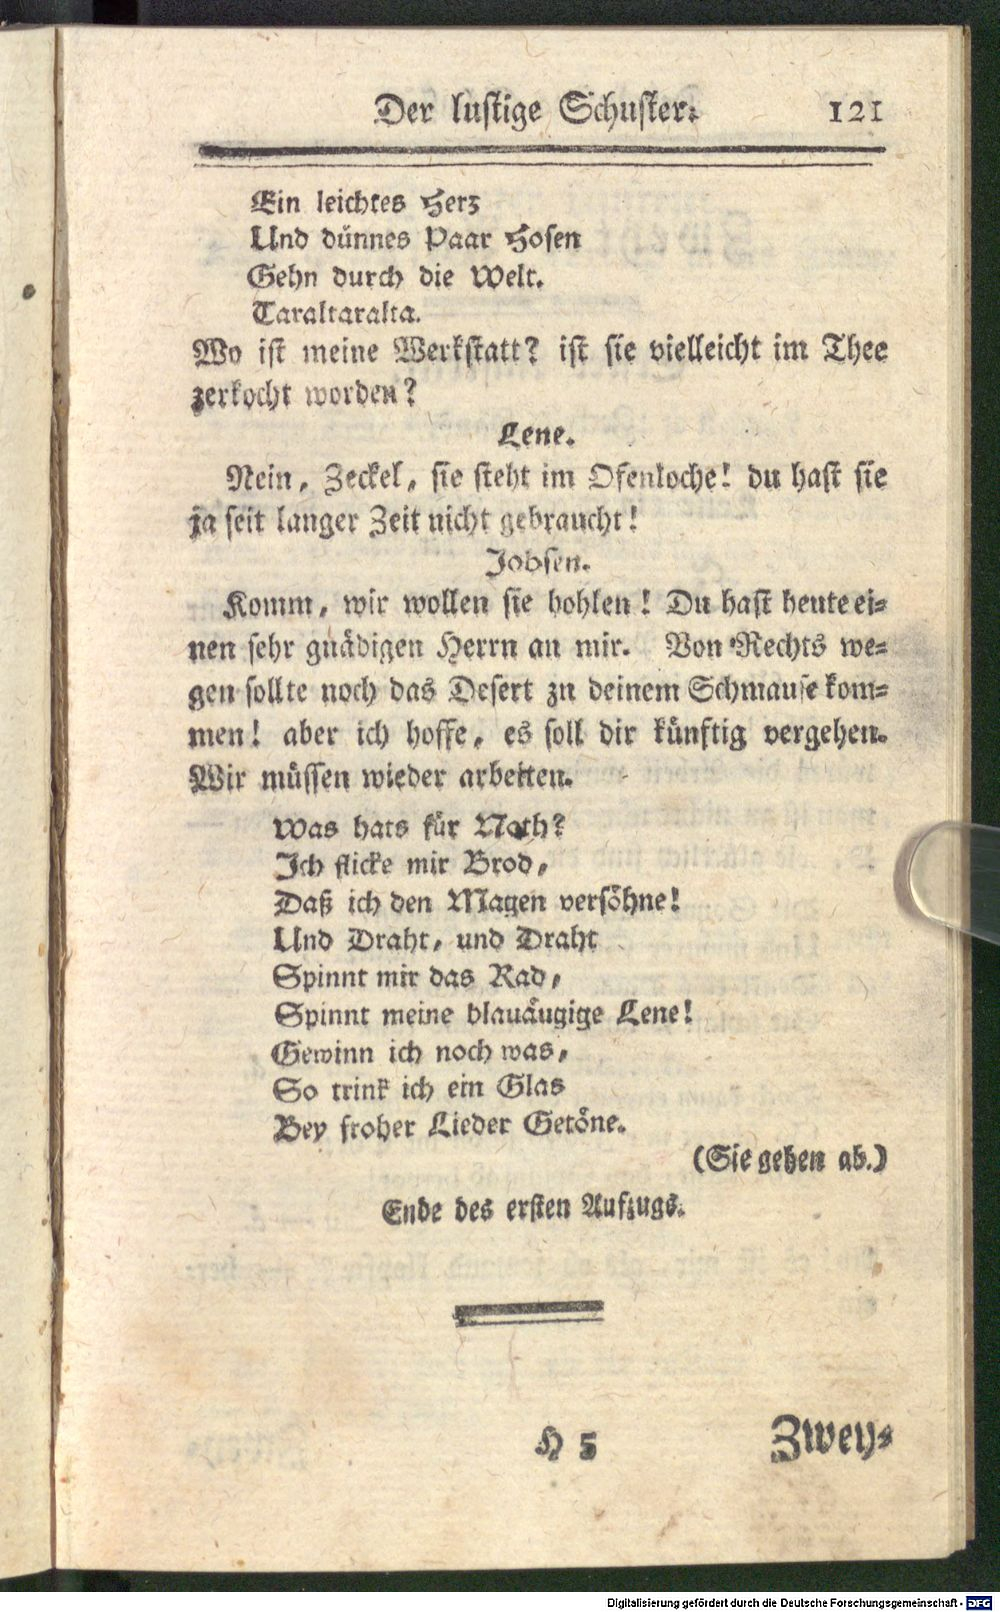 Der lustige Schuster. 121
Ein leichtes Herz
Und dünnes Paar Hosen
Gehn durch die Welt.
Taraltaralta.
Wo ist meine Werkstatt? ist sie vielleicht im Thee
zerkocht worden?
Lene.
Nein, Zeckel, sie steht im Ofenloche! du hast sie
ja seit langer Zeit nicht gebraucht!
Jobsen.
Komm, wir wollen sie hohlen! Du hast heute ei-
nen sehr gnädigen Herrn an mir. Von Rechts we-
gen sollte noch das Desert zu deinem Schmause kom-
men! aber ich hoffe, es soll dir künftig vergehen.
Wir müssen wieder arbeiten.
Was hats für Noth?
Ich flicke mir Brod,
Daß ich den Magen versöhne!
Und Draht, und Draht
Spinnt mir das Rad,
Spinnt meine blauäugige Lene!
Gewinn ich noch was,
So trink ich ein Glas
Bey froher Lieder Getöne.
(Sie gehen ab.)
Ende des ersten Aufzugs.
H 5 Zwey-
Digitalisierung gefördert durch die Deutsche Forschungsgemeinschaft - DFG